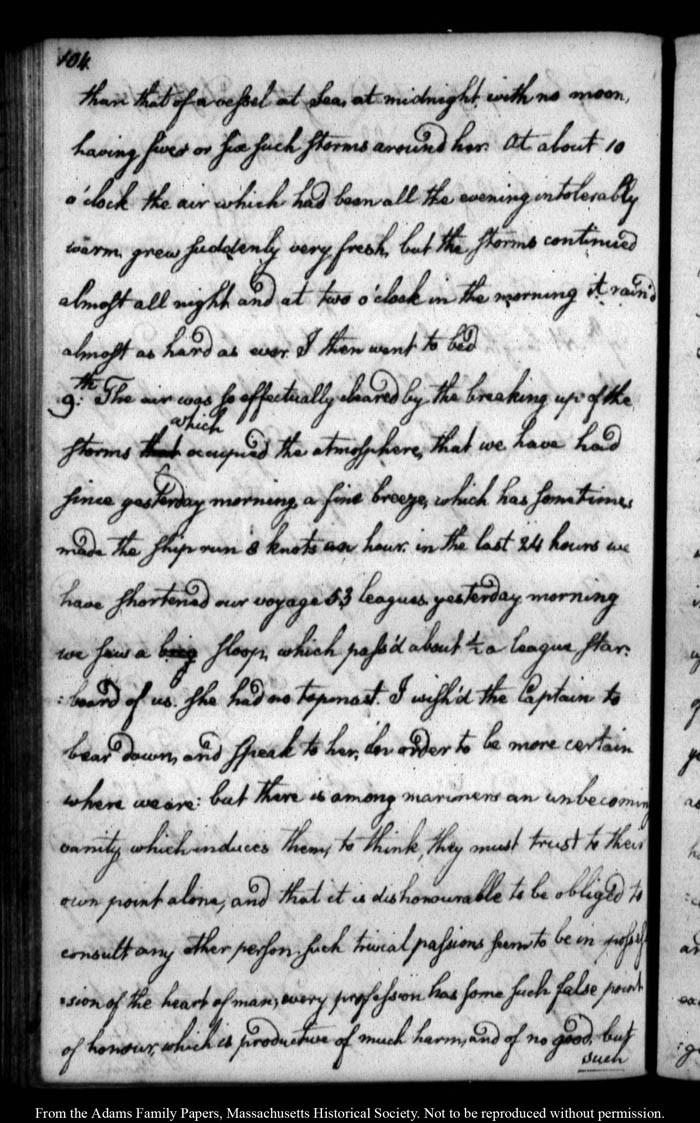 104.
than that of a vessel at Sea, at midnight with no moon,
having five or six such storms around her. At about 10
o'clock the air which had been all the evening intolerably
warm, grew suddenly very fresh, but the storms continued
almost all night and at two o'clock in the morning it rain'd
almost as hard as ever. I then went to bed
9th: The air was so effectually cleared by the breaking up of the
which
storms that occupied the atmosphere, that we have had
since yesterday morning, a fine breeze, which has sometimes
made the ship run 8 knots an hour. in the last 24 hours we
have shortened our voyage 53 leagues. yesterday morning
we saw a brig sloop, which pass'd about ½ a league star:
:board of us. She had no topmast. I wish'd the Captain to
bear down, and speak to her, in order to be more certain
where we are: but there is among mariners an unbecoming
vanity, which induces them, to think, they must trust to their
own point alone, and that it is dishonourable to be obliged to
consult any other person. such trivial passions seem to be in posses
:sion of the heart of man; every profession has some such false point
of honour, which is productive of much harm, and of no good, but
such
From the Adams Family Papers, Massachusetts Historical Society. Not to be reproduced without permission.